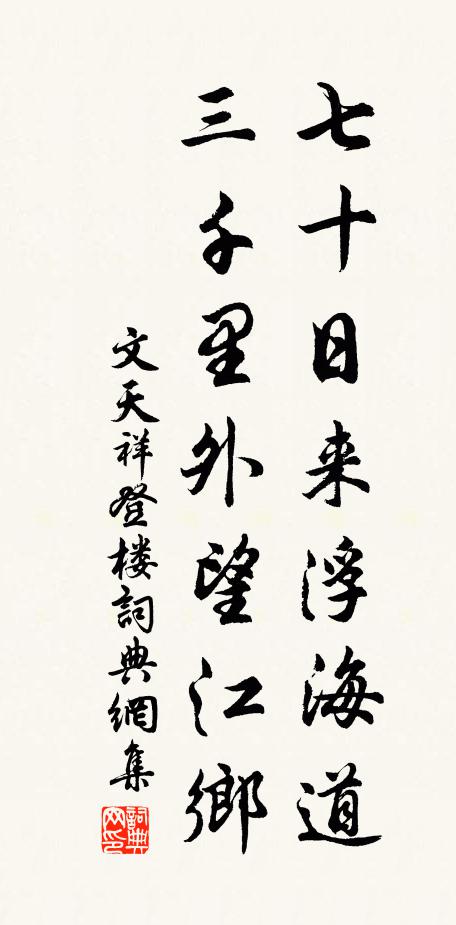 七十日来浮海道
三千里外望江鄉
文天祥登楼詞典網集
詞典网印